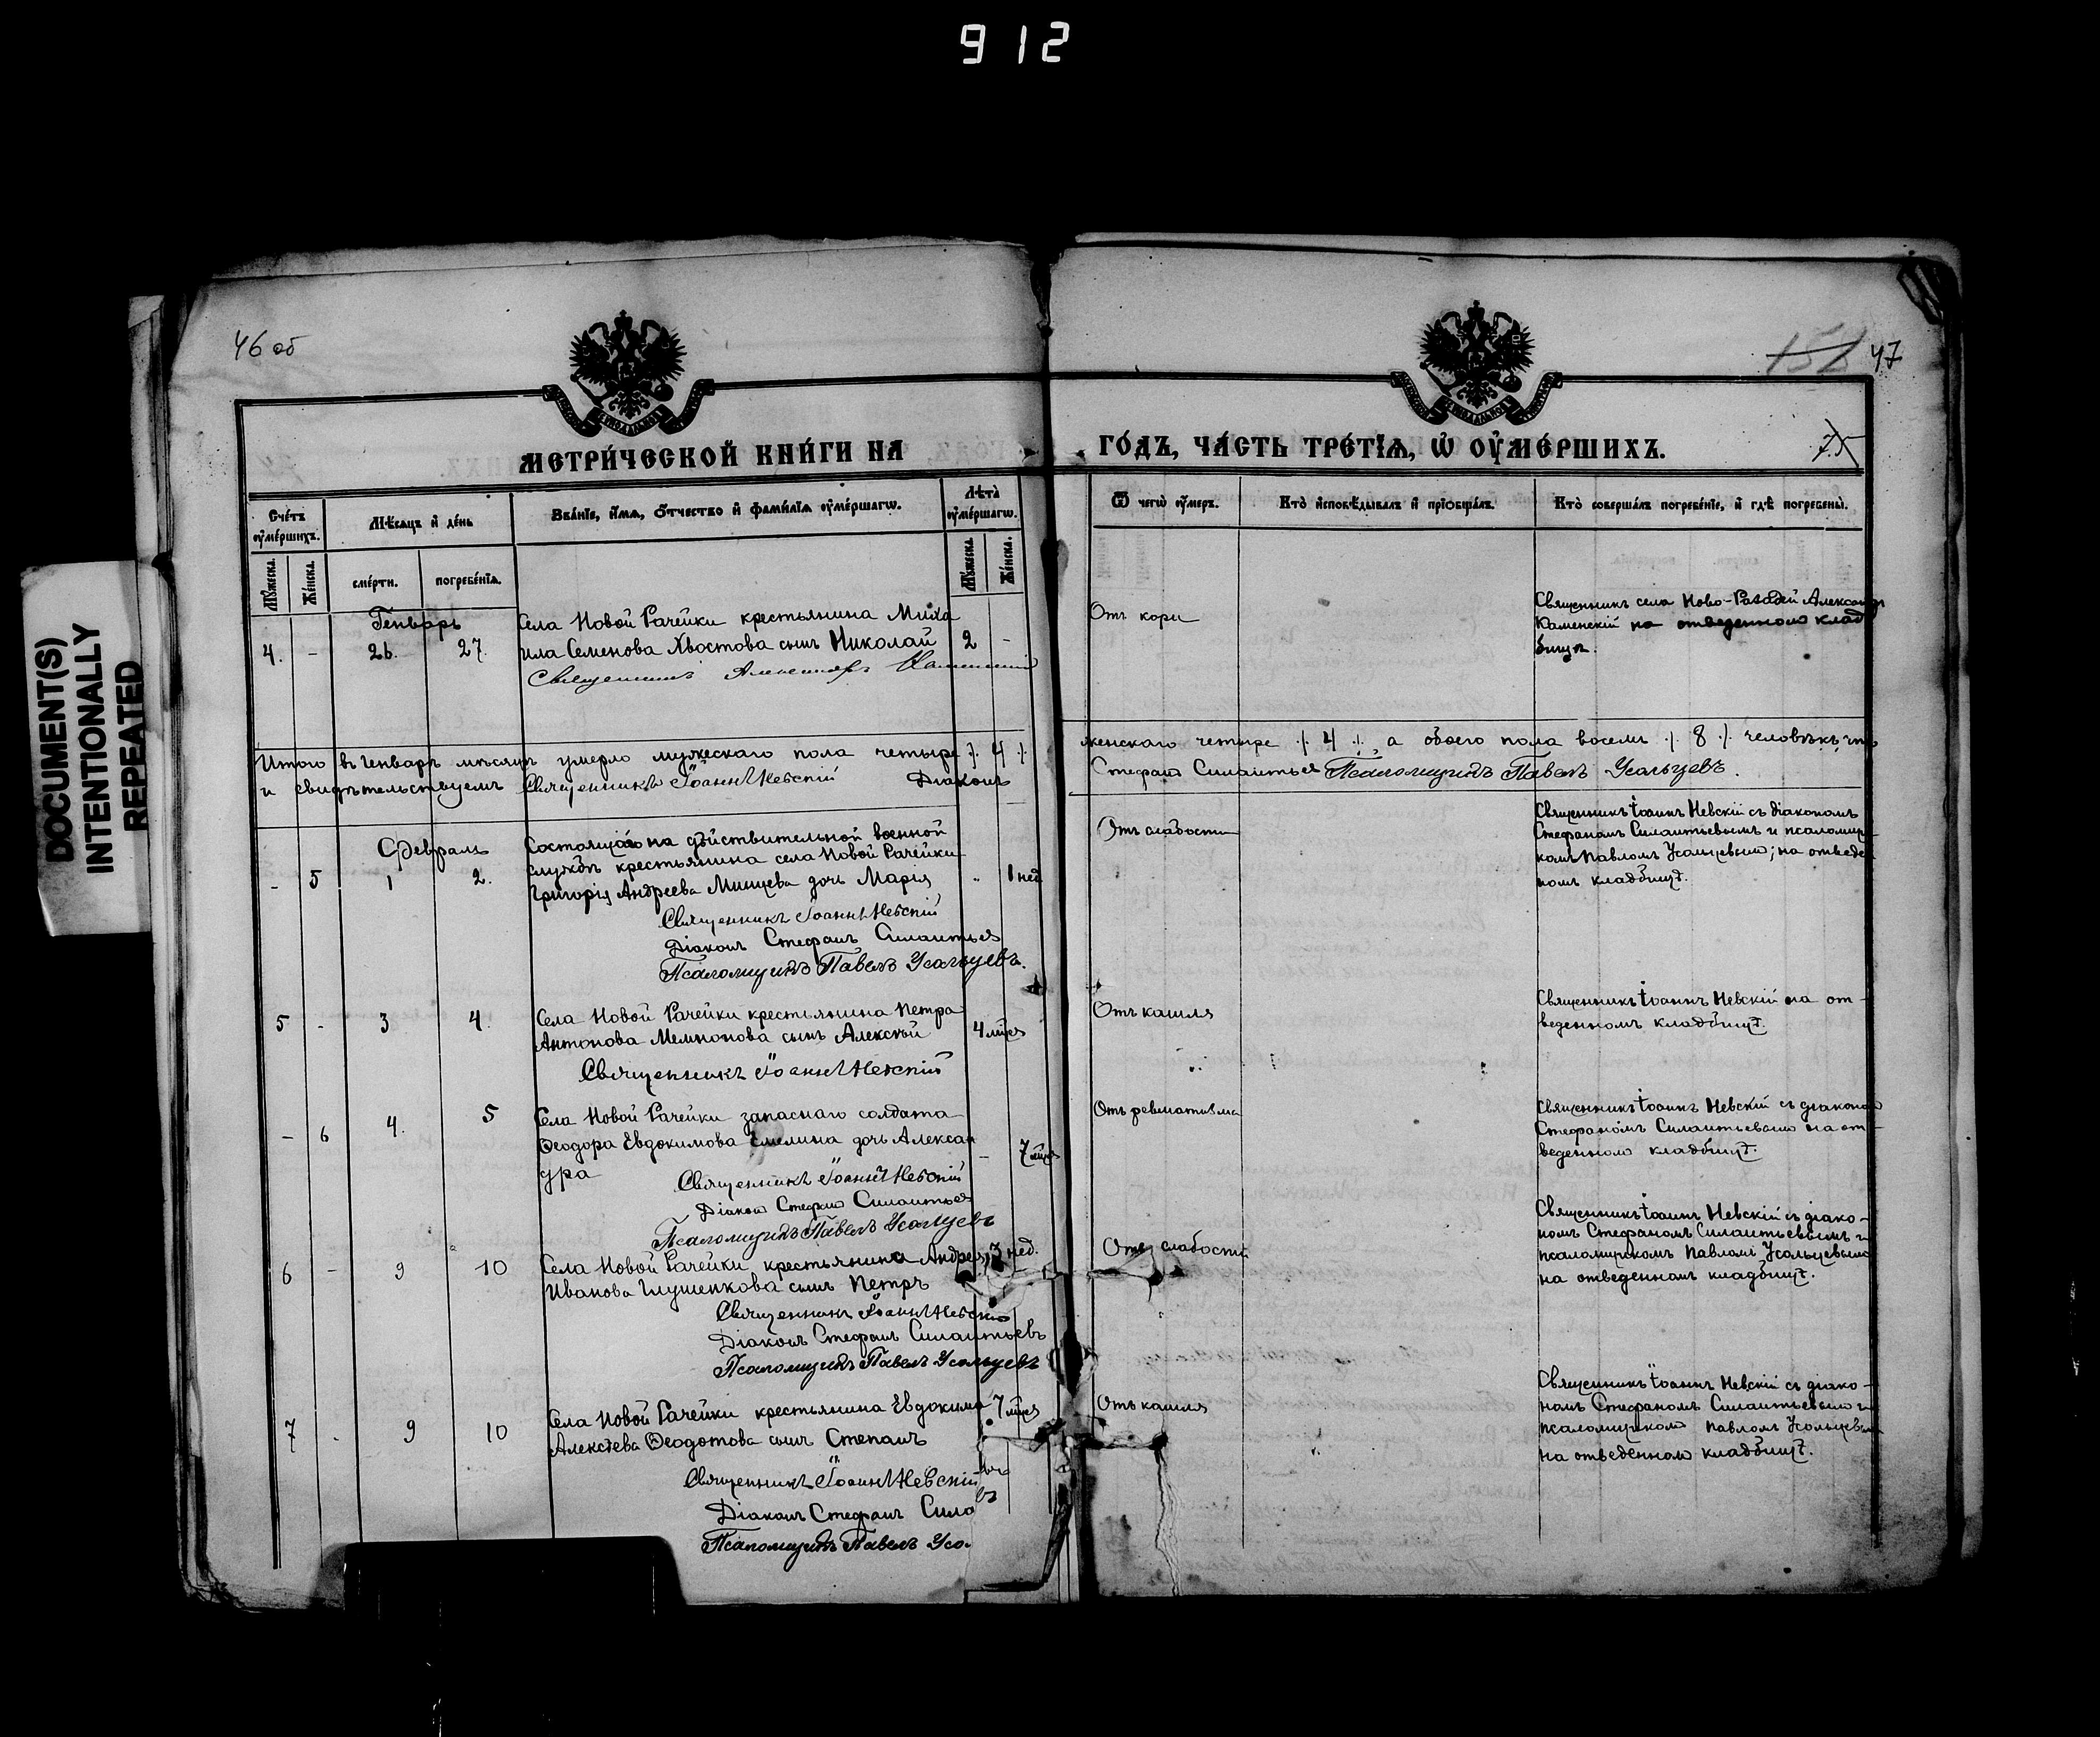 912
DOCUMENT(S)
INTENTIONALLY
REPEATED
46 об
158 47
МЕТРИ́ЧЕСКОЙ КНИ́ГИ НА
ГО́ДЪ, ЧА́СТЬ ТРЕ́ТІѦ, Ѿ ОУ҆МЕ́РШИХЪ.
75
Сче́тъ оу҆ме́ршихъ.
Мѣ́сяцъ и҆ де́нь
Зва́ніе, и҆́мѧ, ѻ҆́тчество и҆ фами́лїѧ оу҆ме́ршагѡ.
Лѣ́та оу҆ме́ршагѡ.
Ѿ чегѡ̀ оу҆́меръ.
Кто̀ и҆сповѣ́дывалъ и҆ прїѡбща́лъ.
Кто̀ соверша́лъ погребе́нїе, и҆ гдѣ̀ погребены̀.
Му́жеска.
Же́нска.
сме́рти.
погребе́нїѧ.
Му́жеска.
Же́нска.
Генварь
4. - 26. 27.
Села Новой Рачейки крестьянина Миха
ила Семенова Хвостова сынъ Николай
2 -
Священникъ Александръ Каменскій
Отъ кори
Священникъ села Ново-Рачейки Александръ
Каменскій на отведенномъ клад
бищѣ.
Итого въ генварѣ мѣсяцѣ умерло мужескаго пола четыре ./. 4 ./.
женскаго четыре ./. 4 ./., а обоего пола восемь ./. 8 ./. человѣкъ, что
и свидѣтельствуемъ Священникъ Іоаннъ Невскій Діаконъ
Стефанъ Силантьев Псаломщикъ Павелъ Усольцевъ.
Февраль
- 5 1 2.
Состоящаго на дѣйствительной военной
службѣ крестьянина села Новой Рачейки
Григорія Андреева Минцева дочь Марья
" 1 нед
Священникъ Іоаннъ Невскій
Діаконъ Стефанъ Силантьев
Псаломщикъ Павелъ Усольцевъ.
Отъ слабости
Священникъ Іоаннъ Невскій съ діакономъ
Стефаномъ Силантьевымъ и псаломщи-
комъ Павломъ Усольцевымъ; на отведен
номъ кладбищѣ.
5 - 3 4.
Села Новой Рачейки крестьянина Петра
Антонова Мемнонова сынъ Алексѣй
4 мѣся
Священникъ Іоаннъ Невскій
Отъ кашля
Священникъ Іоаннъ Невскій на от-
веденномъ кладбищѣ.
- 6 4. 5
Села Новой Рачейки запаснаго солдата
Ѳеодора Евдокимова Емелина дочь Алексан
дра
- 7 мѣся
Священникъ Іоаннъ Невскій
Діаконъ Стефанъ Силантьев
Псаломщикъ Павелъ Усольцевъ
Отъ ревматизма
Священникъ Іоаннъ Невскій съ діакономъ
Стефаномъ Силантьевымъ на от-
веденномъ кладбищѣ.
6 - 9 10
Села Новой Рачейки крестьянина Андрея
Иванова Глушенкова сынъ Петръ
3 нед.
Священникъ Іоаннъ Невскій
Діаконъ Стефанъ Силантьевъ
Псаломщикъ Павелъ Усольцевъ
Отъ слабости
Священникъ Іоаннъ Невскій съ діако-
номъ Стефаномъ Силантьевымъ и
псаломщикомъ Павломъ Усольцевымъ
на отведенномъ кладбищѣ.
7 - 9 10
Села Новой Рачейки крестьянина Евдокима
Алексѣева Ѳеодотова сынъ Степанъ
7 мѣся
Священникъ Іоаннъ Невскій
Діаконъ Стефанъ Сила
Псаломщикъ Павелъ Усо
Отъ кашля
Священникъ Іоаннъ Невскій съ діако-
номъ Стефаномъ Силантьевымъ и
псаломщикомъ Павломъ Усольцевым
на отведенномъ кладбищѣ.